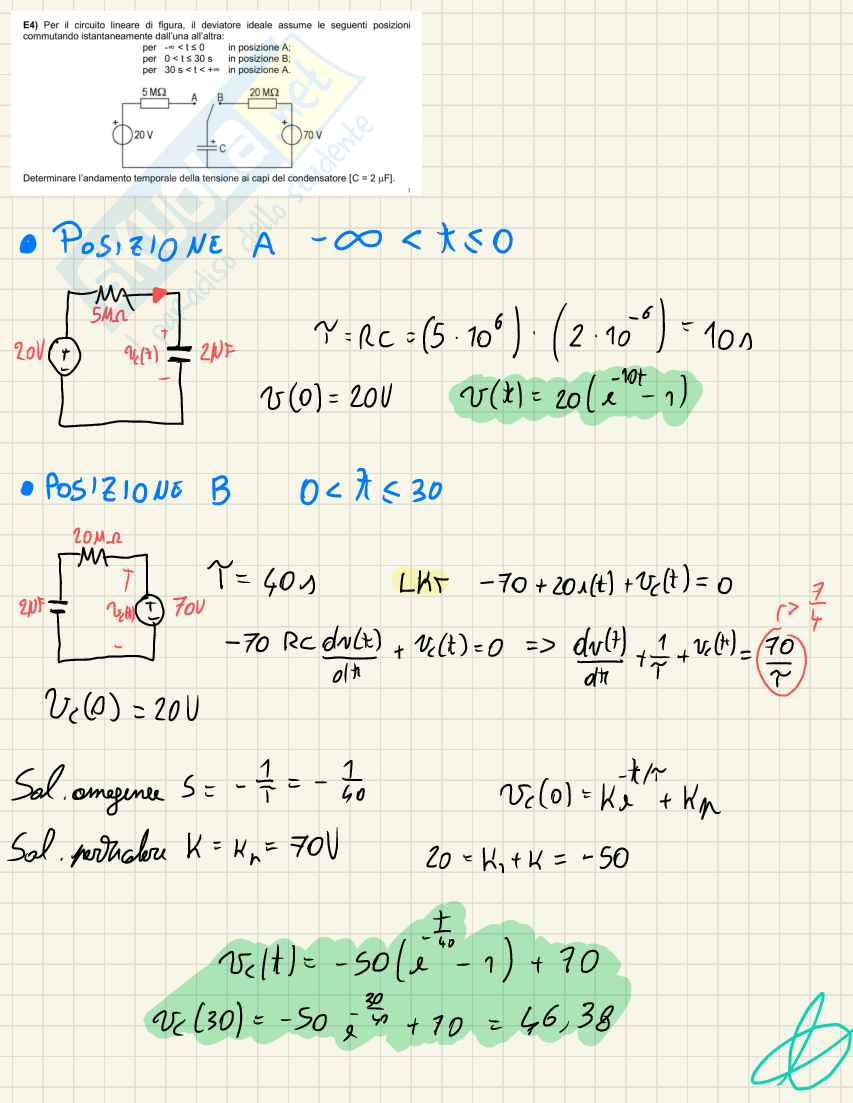 E4) Per il circuito lineare di figura, il deviatore ideale assume le seguenti posizioni
commutando istantaneamente dall'una all'altra:
per -∞ < t ≤ 0 in posizione A;
per 0 < t ≤ 30 s in posizione B;
per 30 s < t < +∞ in posizione A.
5 MΩ A B 20 MΩ
+ 20 V + C + 70 V
Determinare l'andamento temporale della tensione ai capi del condensatore [C = 2 μF].
1
SKUOLA.net
il paradiso dello studente
• POSIZIONE A -∞ < t ≤ 0
5MΩ
20V + - + vc(t) - 2μF
τ = RC = (5 · 10^6) · (2 · 10^-6) = 10s
v(0) = 20V v(t) = 20(e^-10t - 1)
• POSIZIONE B 0 < t ≤ 30
20MΩ
2μF vc(t) + - 70V
τ = 40s LKT -70 + 20i(t) + vc(t) = 0
-70 RC dv(t)/dt + vc(t) = 0 => dv(t)/dt + 1/τ + vc(t) = 70/τ -> 7/4
vc(0) = 20V
Sol. omogenea s = -1/τ = -1/40 vc(0) = Ke^-t/τ + Kp
Sol. particolare K = Kp = 70V 20 = K1 + K = -50
vc(t) = -50(e^-t/40 - 1) + 70
vc(30) = -50 e^-30/40 + 70 = 46,38